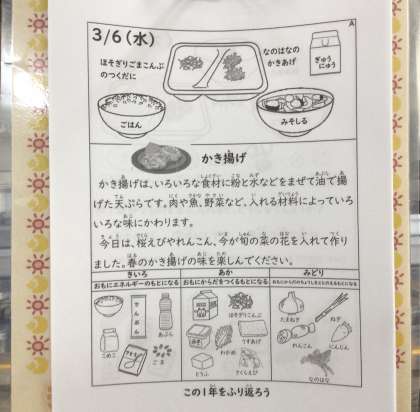 A
3/6(水)
ほそぎりごまこんぶ
のつくだに
なのはなの
かきあげ
ぎゅう
にゅう
ごはん
みそしる
かき揚げ
かき揚げは、いろいろな食材に粉と水などをまぜて油で揚
げた天ぷらです。肉や魚、野菜など、入れる材料によっていろ
いろな味にかわります。
今日は、桜えびやれんこん、今が旬の菜の花を入れて作り
ました。春のかき揚げの味を楽しんでください。
きいろ
あか
みどり
おもにエネルギーのもとになる
おもにからだをつくるもとになる
おもにからだのちょうしをととのえるもとになる
こめこ
でんぷん
あぶら
ごま
ほそぎりこんぶ
うすあげ
みそ
わかめ
とうふ
さくらえび
たまねぎ
ねぎ
れんこん
にんじん
なのはな
この1年をふり返ろう